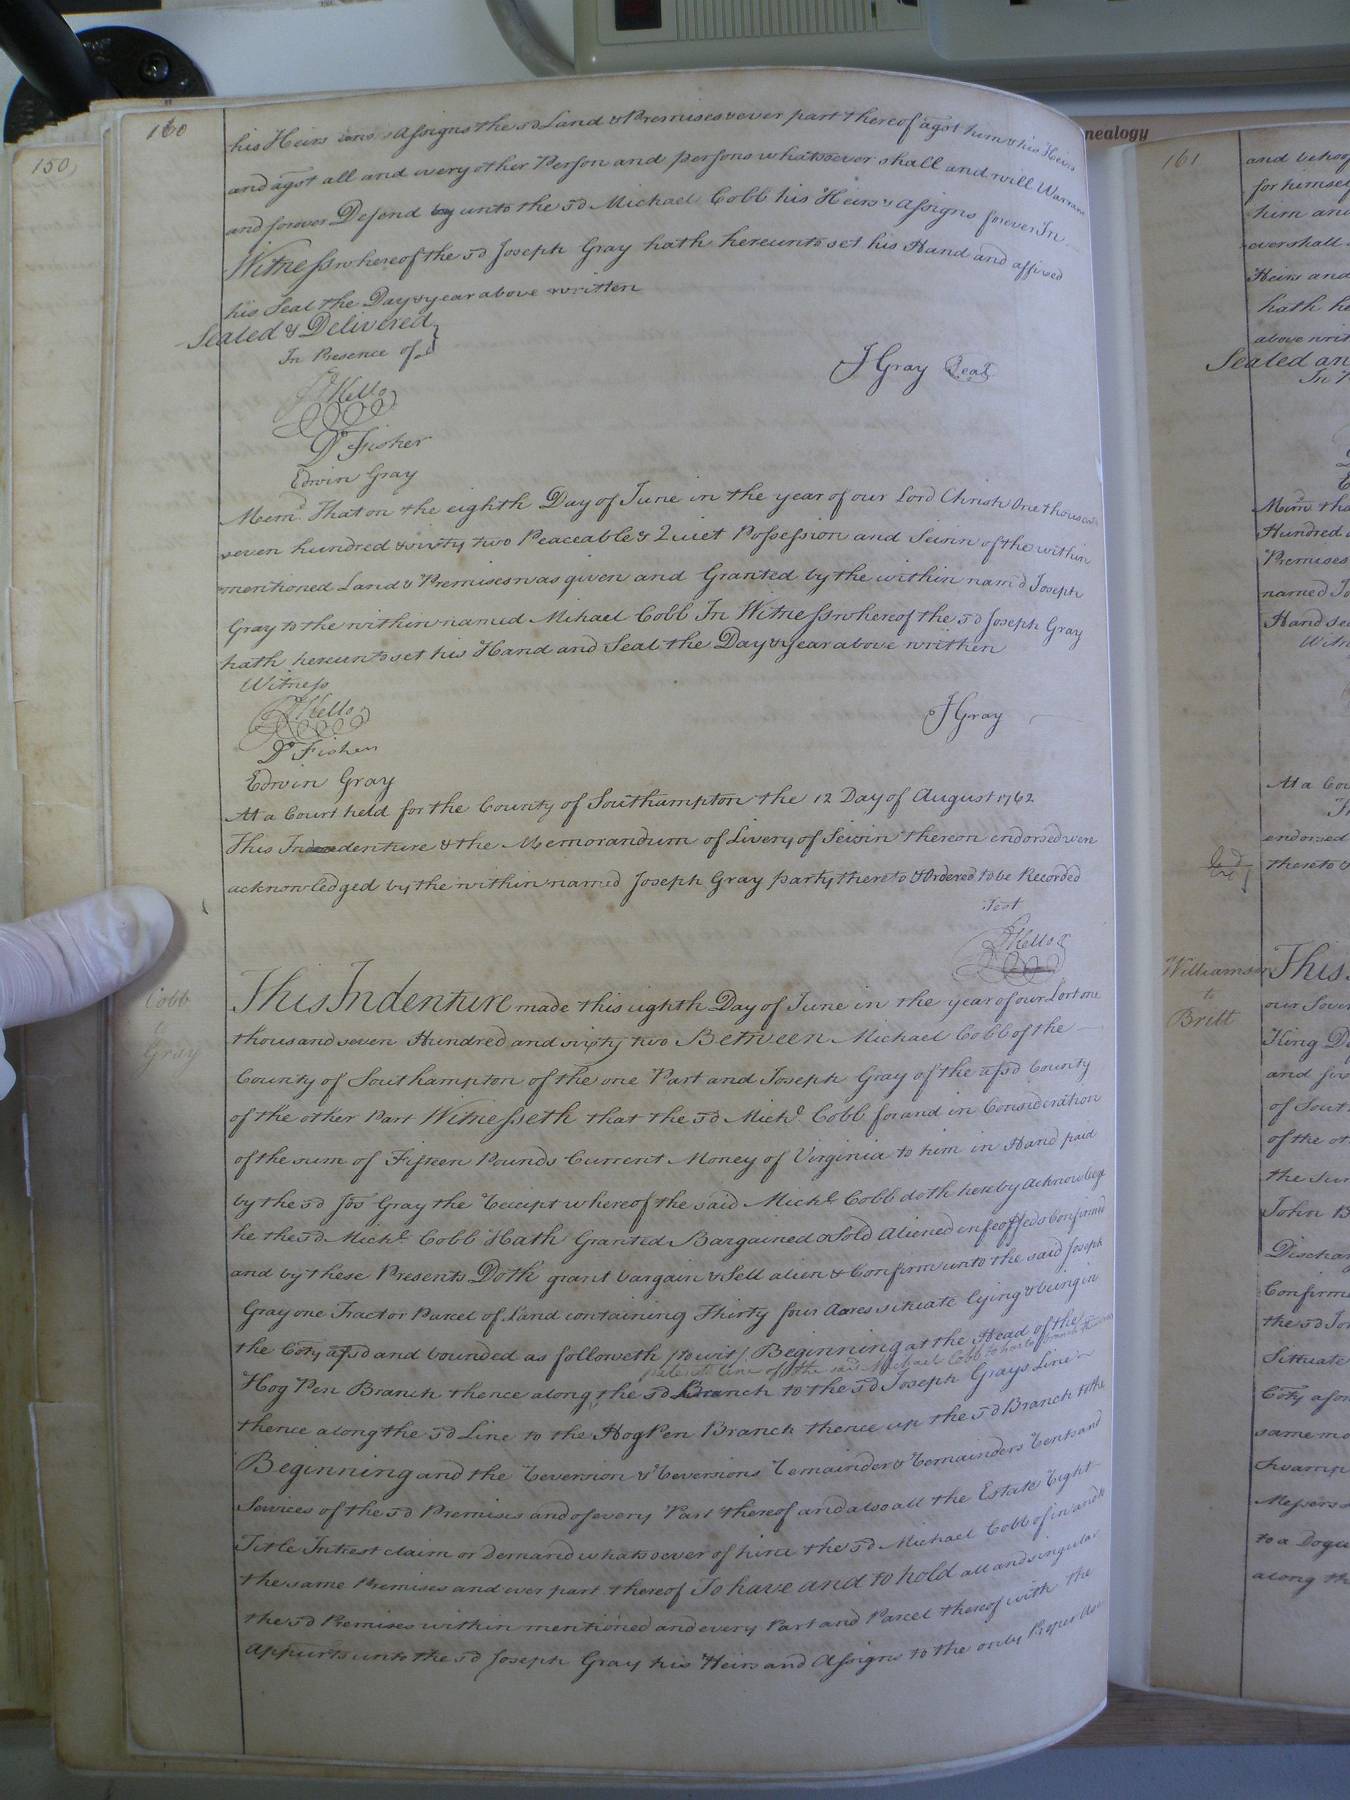 nealogy
150
160
his Heirs and Assigns the sd Land & Premises & ever part thereof agst him & his Heirs
and agst all and every other Person and persons whatsoever shall and will Warran
and forever Defend by unto the sd Michael Cobb his Heirs & Assigns forever In
Witness whereof the sd Joseph Gray hath hereunto set his Hand and affixed
his Seal the Day & year above written
Sealed & Delivered
In Presence of
J Gray Seal
Kello
Dl Fisher
Edwin Gray
Memd. That on the eighth Day of June in the year of our Lord Christ One thousand
seven hundred & sixty two Peaceable & Quiet Possession and Seisin of the within
mentioned Land & Premises was given and Granted by the within namd Joseph
Gray to the within named Mihael Cobb In Witness whereof the sd Joseph Gray
hath hereunto set his Hand and Seal the Day & year above written
Witness
Kello
J Gray
Dl Fisher
Edwin Gray
At a Court held for the County of Southampton the 12 Day of August 1762
This Indenture & the Memorandum of Livery of Seisin thereon endorsed were
acknowledged by the within named Joseph Gray party thereto & Ordered to be Recorded
Test
Kello
Cobb
to
Gray
This Indenture made this eighth Day of June in the year of our Lord one
thousand seven Hundred and sixty two Between Michael Cobb of the
County of Southampton of the one Part and Joseph Gray of the afsd County
of the other Part Witnesseth that the sd Michl. Cobb for and in Consideration
of the sum of Fifteen Pounds Current Money of Virginia to him in Hand paid
by the sd Jos Gray the Receipt whereof the said Michl. Cobb doth hereby acknowledge
he the sd Michl. Cobb Hath Granted Bargained & Sold Aliened infeoffed & Confirmed
and by these Presents Doth grant bargain & Sell alien & Confirm unto the said Joseph
Gray one Tract or Parcel of Land containing Thirty four Acres situate lying & being in
the Coty afsd and bounded as followeth /to wit/ Beginning at the Head of the
line of the said Michael Cobb
Hog Pen Branch thence along the sd Branch to the sd Joseph Grays Line
thence along the sd Line to the Hog Pen Branch thence up the sd Branch to the
Beginning and the Reversion & Reversions Remainder & Remainders Rents and
Services of the sd Premises and of every Part thereof and also all the Estate Right
Title Intrest claim or Demand whatsoever of him the sd Michael Cobb of in and to
the same Premises and ever part thereof To have and to hold all and singular
the sd Premises within mentioned and every Part and Parcel thereof with the
appurts unto the sd Joseph Gray his Heirs and Assigns to the only Proper
161
and behoof
for himself
him and
ever shall
Heirs and
hath he
above writ
Sealed an
In P
Mem tha
Hundred
Premises
named Jo
Hand se
Witn
At a Cou
endorsed
thereto &
Williamson
to
Britt
This
our Sover
King D
and six
of South
of the ot
the Sum
John B
Dischar
Confirm
the sd Jo
Situate
Coty afor
same mo
Swamp
Messers
to a Dogw
along th